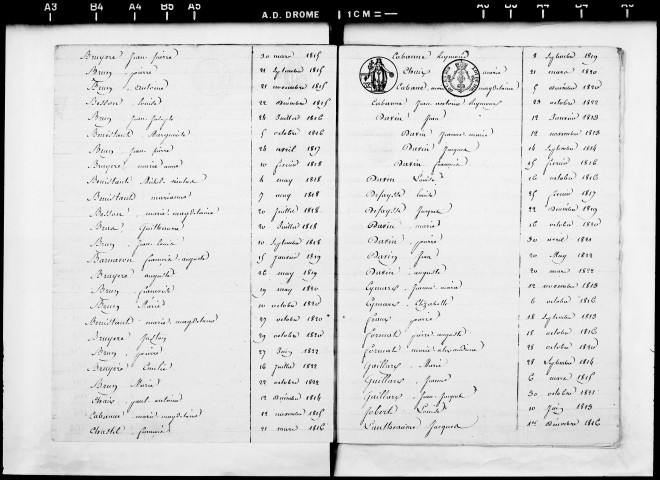 A3 B4 A4 B5 A5 A.D. DROME 1CM = A5 B5 A4 B4 A3
Bruyere jean pierre 30 mars 1815
Brun pierre 21 Septembre 1815
Brun antoine 21 novembre 1815
Besson louise 22 Décembre 1815
Brun jean joseph 24 Juillet 1816
Bouistant Marguerite 5 octobre 1816
Brun jean pierre 24 avril 1817
Bruyere marie anne 10 février 1818
Bouistant Michel 4 may 1818
Bouistant marianne 7 may 1818
Besson marie magdelaine 20 Juillet 1818
Brun Guillaume 20 Juillet 1818
Brun jean louis 10 Septembre 1818
Barnaron francois auguste 25 Janvier 1819
Bruyere auguste 26 may 1819
Brun francoise 19 may 1820
Brun Marie 10 octobre 1820
Bouistant marie magdelaine 27 octobre 1820
Bruyere 29 octobre 1820
Brun pierre 27 Juin 1822
Bruyere Emilie 16 Juillet 1822
Brun Marie 22 octobre 1822
Chaix paul antoine 12 Décembre 1814
Cabanne marie magdelaine 12 novembre 1815
Chastel francois 21 mars 1816
Cabanne Reymond 3 Septembre 1819
Chaix marie 21 mars 1820
Cabane magdelaine 5 Décembre 1820
Cabanne Jean antoine Reymond 23 octobre 1822
Davin Jean 12 Janvier 1813
Davin Jeanne marie 12 novembre 1813
Davin Jacques 14 Septembre 1814
Davin francois 25 février 1816
Davin Louise 16 octobre 1816
Defaysse louise 25 février 1817
Defaysse Jacques 22 Décembre 1819
Davin marie 16 octobre 1820
Davin pierre 30 avril 1821
Davin Jean 20 May 1822
Davin auguste 20 mars 1822
Eymars Jeanne marie 12 novembre 1813
Eymars Elizabeth 6 octobre 1816
Faux pierre 18 Septembre 1813
Format pierre auguste 15 octobre 1816
Format marie alexandrine 28 octobre 1820
Gaillard Marie 28 Septembre 1814
Gaillard Jeanne 6 mars 1815
Gaillard Jean Jacques 30 octobre 1821
Jobert Louise 10 Juin 1813
Lantheaume Jacques 1er Décembre 1816